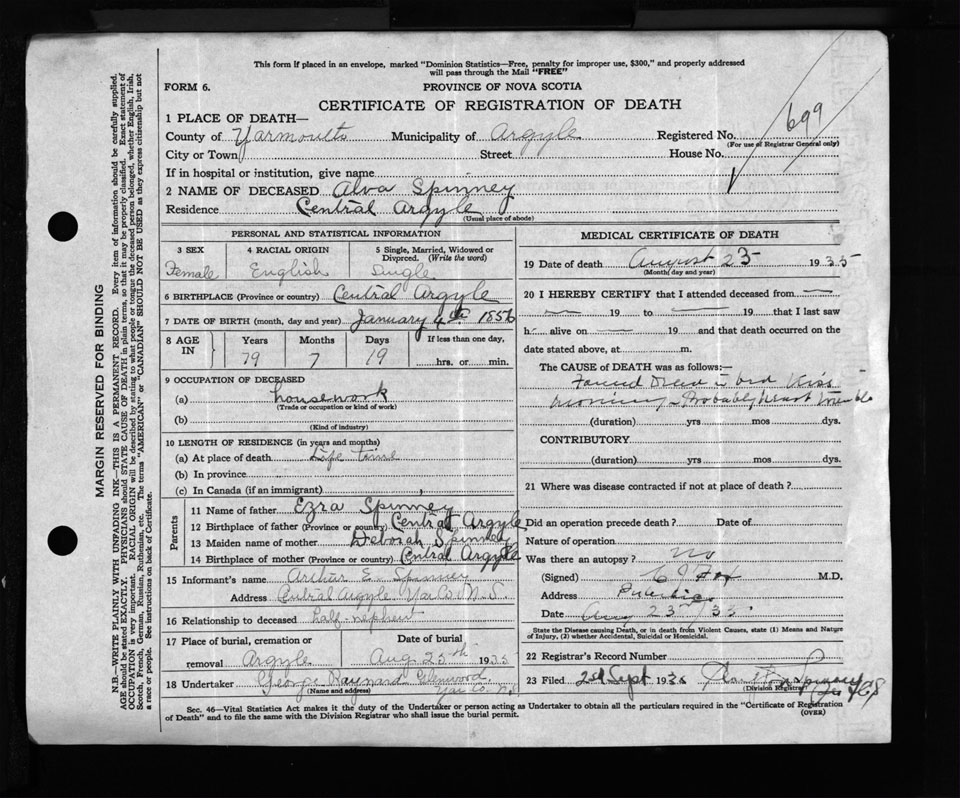 This form if placed in an envelope, marked "Dominion Statistics—Free, penalty for improper use, $300," and properly addressed
will pass through the Mail "FREE"
FORM 6.
PROVINCE OF NOVA SCOTIA
CERTIFICATE OF REGISTRATION OF DEATH
699
1 PLACE OF DEATH—
County of Yarmouth Municipality of Argyle Registered No.
(For use of Registrar General only)
City or Town Street House No.
If in hospital or institution, give name
2 NAME OF DECEASED Alva Spinney
Residence Central Argyle
(Usual place of abode)
PERSONAL AND STATISTICAL INFORMATION
3 SEX 4 RACIAL ORIGIN 5 Single, Married, Widowed or
Divorced. (Write the word)
Female English Single
6 BIRTHPLACE (Province or country) Central Argyle
7 DATE OF BIRTH (month, day and year) January 4th 1856
8 AGE IN Years Months Days If less than one day,
79 7 19 hrs. or min.
9 OCCUPATION OF DECEASED
(a) housework
(Trade or occupation or kind of work)
(b)
(Kind of industry)
10 LENGTH OF RESIDENCE (in years and months)
(a) At place of death Life time
(b) In province
(c) In Canada (if an immigrant)
Parents
11 Name of father Ezra Spinney
12 Birthplace of father (Province or country) Central Argyle
13 Maiden name of mother Deborah Spinney
14 Birthplace of mother (Province or country) Central Argyle
15 Informant's name Arthur E. Spinney
Address Central Argyle Yar Co. N.S.
16 Relationship to deceased half-nephew
17 Place of burial, cremation or Date of burial
removal Argyle Aug 25th 1935
18 Undertaker George Haynard Glenwood
(Name and address) Yar Co. N.S.
MEDICAL CERTIFICATE OF DEATH
19 Date of death August 23 1935
(Month day and year)
20 I HEREBY CERTIFY that I attended deceased from —
— 19 to — 19 that I last saw
h alive on — 19 and that death occurred on the
date stated above, at m.
The CAUSE OF DEATH was as follows:—
Found Dead in bed this
morning – Probably heart trouble
(duration) yrs mos dys.
CONTRIBUTORY
(duration) yrs mos dys.
21 Where was disease contracted if not at place of death?
Did an operation precede death? Date of
Nature of operation
Was there an autopsy? No
(Signed) Fox M.D.
Address Pubnico
Date Aug 23rd/35
State the Disease causing Death, or in death from Violent Causes, state (1) Means and Nature
of Injury, (2) whether Accidental, Suicidal or Homicidal.
22 Registrar's Record Number
23 Filed 2nd Sept 1935
(Division Registrar)
Sec. 46—Vital Statistics Act makes it the duty of the Undertaker or person acting as Undertaker to obtain all the particulars required in the "Certificate of Registration
of Death" and to file the same with the Division Registrar who shall issue the burial permit.
(OVER)
MARGIN RESERVED FOR BINDING
N.B.—WRITE PLAINLY WITH UNFADING INK—THIS IS A PERMANENT RECORD. Every item of information should be carefully supplied.
AGE should be stated EXACTLY. PHYSICIANS should STATE CAUSE OF DEATH in plain terms, so that it may be properly classified. Exact statement of
OCCUPATION is very important. RACIAL ORIGIN will be described by stating to what people or tongue the deceased person belonged, whether English, Irish,
Scotch, French, German, Russian, Ruthenian, etc. The terms "AMERICAN" or "CANADIAN" SHOULD NOT BE USED as they express citizenship but not
a race or people. See instructions on back of Certificate.